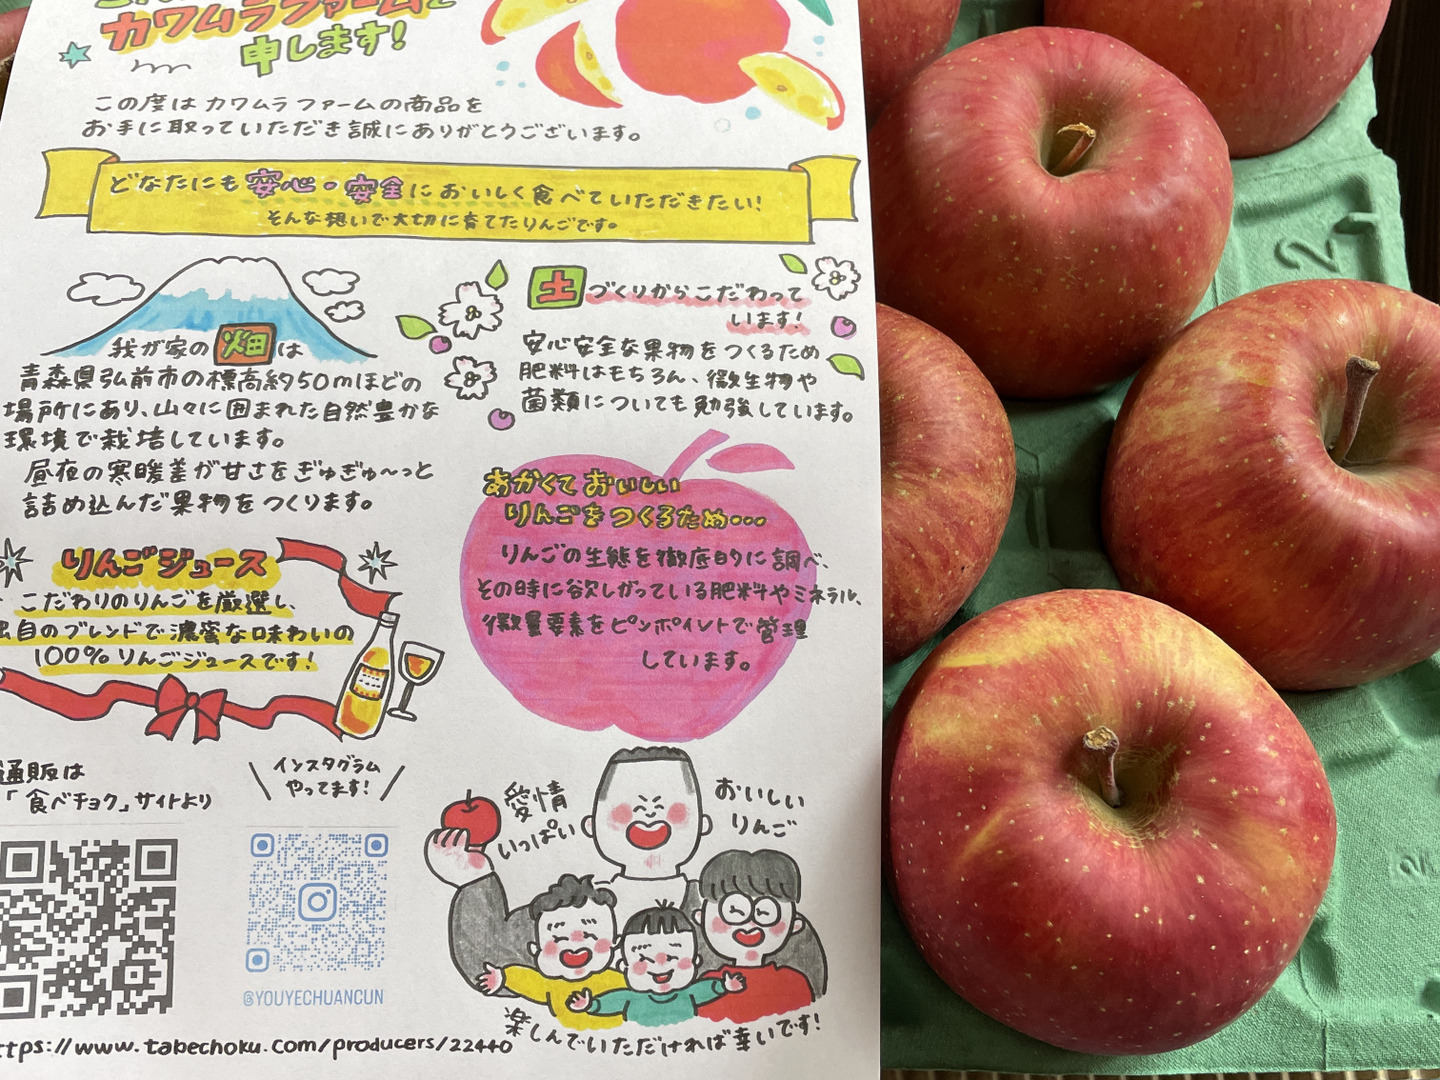 カワムラファームと
申します!
この度はカワムラファームの商品を
お手に取っていただき誠にありがとうございます。
どなたにも安心・安全においしく食べていただきたい!
そんな想いで大切に育てたりんごです。
我が家の畑は
青森県弘前市の標高約50mほどの
場所にあり、山々に囲まれた自然豊かな
環境で栽培しています。
昼夜の寒暖差が甘さをぎゅぎゅ〜っと
詰め込んだ果物をつくります。
土づくりからこだわって
います!
安心安全な果物をつくるため
肥料はもちろん、微生物や
菌類についても勉強しています。
あかくておいしい
りんごをつくるため・・・
りんごの生態を徹底的に調べ、
その時に欲しがっている肥料やミネラル、
微量要素をピンポイントで管理
しています。
りんごジュース
こだわりのりんごを厳選し、
自のブレンドで濃蜜な味わいの
100%りんごジュースです!
通販は
「食べチョク」サイトより
インスタグラム
やってます!
@YOUYECHUANCUN
愛情
いっぱい
おいしい
りんご
楽しんでいただければ幸いです!
ttps://www.tabechoku.com/producers/22440
2